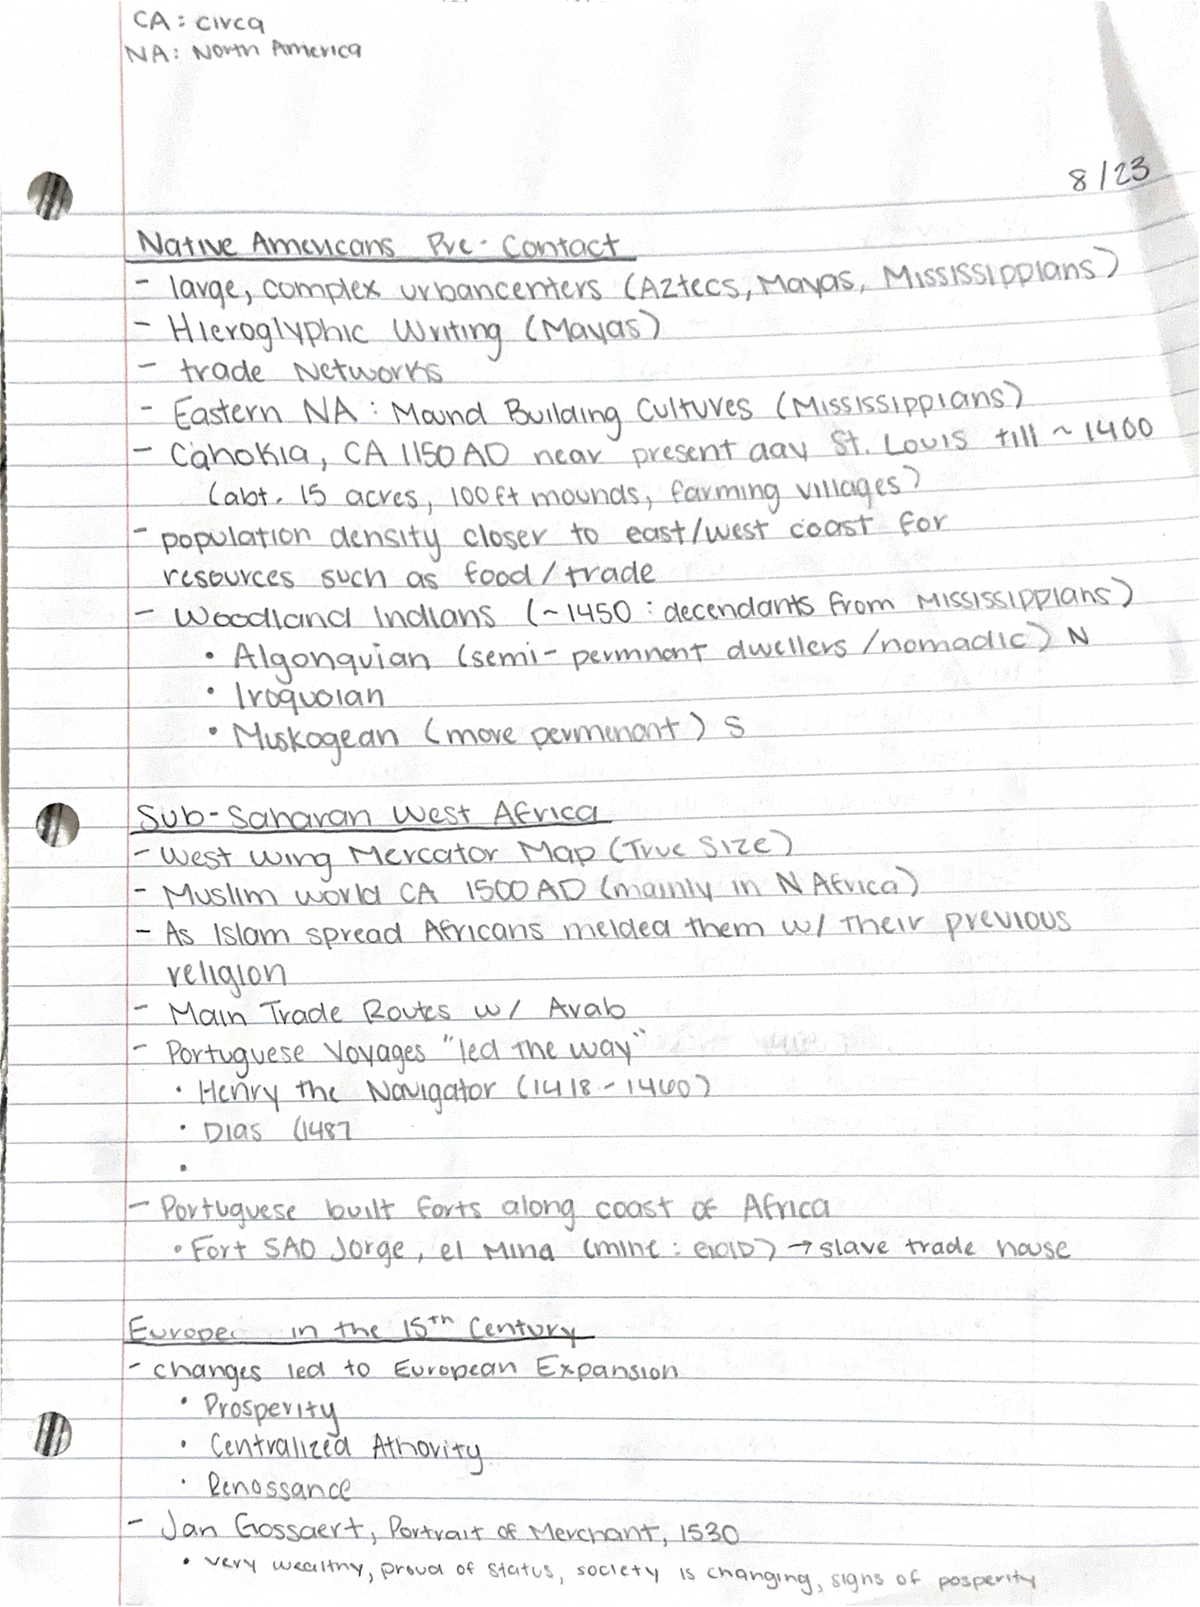 CA: circa
NA: North America
8/23
Native Americans Pre-Contact
- large, complex urbancenters (Aztecs, Mayas, Mississippians)
- Hieroglyphic Writing (Mayas)
- trade Networks
- Eastern NA: Mound Building Cultures (Mississippians)
- Cahokia, CA 1150 AD near present day St. Louis till ~ 1400
(abt. 15 acres, 100ft mounds, farming villages)
- population density closer to east/west coast for
resources such as food/trade
- Woodland Indians (~1450: decendants from Mississippians)
• Algonquian (semi-permnant dwellers /nomadic) N
• Iroquoian
• Muskogean (more permenant) S
Sub-Saharan West Africa
- West Wing Mercator Map (True Size)
- Muslim world CA 1500 AD (mainly in N Africa)
- As Islam spread Africans melded them w/ their previous
religion
- Main Trade Routes w/ Arab
- Portuguese Voyages "led the way"
• Henry the Navigator (1418-1460)
• Dias (1487
•
- Portuguese built forts along coast of Africa
• Fort SAO Jorge, el Mina (mine: GOLD) → slave trade house
Europe in the 15th Century
- changes led to European Expansion
• Prosperity
• Centralized Athority
• Renassance
- Jan Gossaert, Portrait of Merchant, 1530
• very wealthy, proud of status, society is changing, signs of posperity